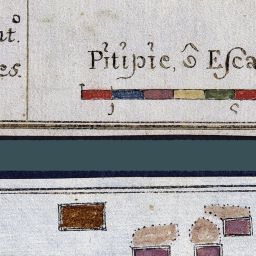 nt.
es.
Pitipie, ô Esca
1 5